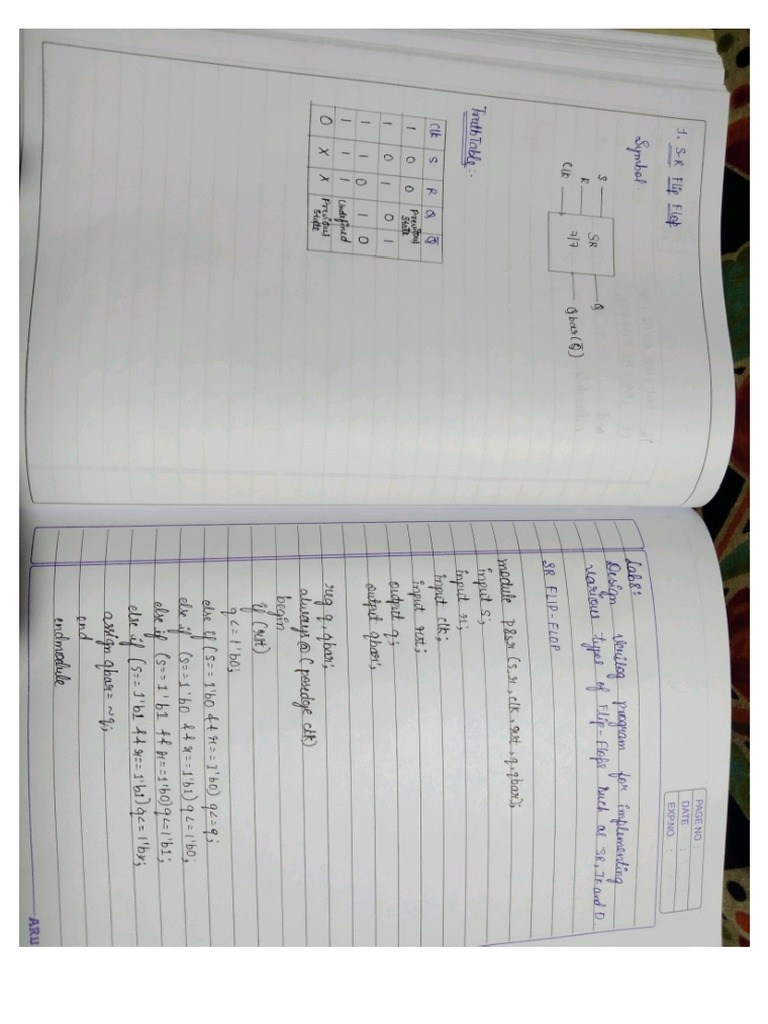 1. S-R Flip Flop
Symbol
S
R
Clk
SR
7/7
Q
Qbar(Q̅)
Truth Table:-
Clk S R Q Q̅
1 0 0 Previous State
1 0 1 0 1
1 1 0 1 0
1 1 1 Undefined
0 X X Previous State
PAGE NO :
DATE :
EXP.NO. :
Lab8:
Design Verilog program for implementing
various types of Flip-Flops such as SR, JK and D.
SR FLIP-FLOP
module p8sr (s,r,clk,rst,q,qbar);
input s;
input r;
input clk;
input rst;
output q;
output qbar;
reg q, qbar;
always@(posedge clk)
begin
if (rst)
q<=1'b0;
else if (s==1'b0 && r==1'b0) q<=q;
else if (s==1'b0 && r==1'b1) q<=1'b0;
else if (s==1'b1 && r==1'b0) q<=1'b1;
else if (s==1'b1 && r==1'b1) q<=1'bx;
assign qbar=~q;
end
endmodule
ARU